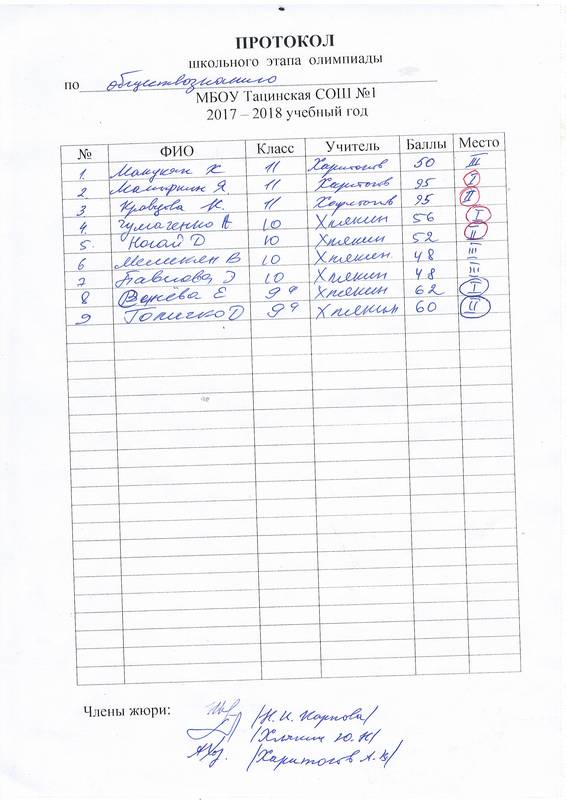 ПРОТОКОЛ
школьного этапа олимпиады
по обществознанию
МБОУ Тацинская СОШ №1
2017 – 2018 учебный год
№ ФИО Класс Учитель Баллы Место
1 Манукян К 11 Харитонов 50 III
2 Я 11 Харитонов 95 I
3 Кравцова К. 11 Харитонов 95 II
4 Чумаченко А 10 Хлякин 56 I
5. Ногай D 10 Хлякин 52 II
6 Меликян В 10 Хлякин 48 III
7 Павлова Э 10 Хлякин 48 III
8 Е 9а Хлякин 62 I
9 D 9а Хлякин 60 II
Члены жюри: /Н.И. Карпова/
/Хлякин Ю.Н/
/Харитонов А.В/